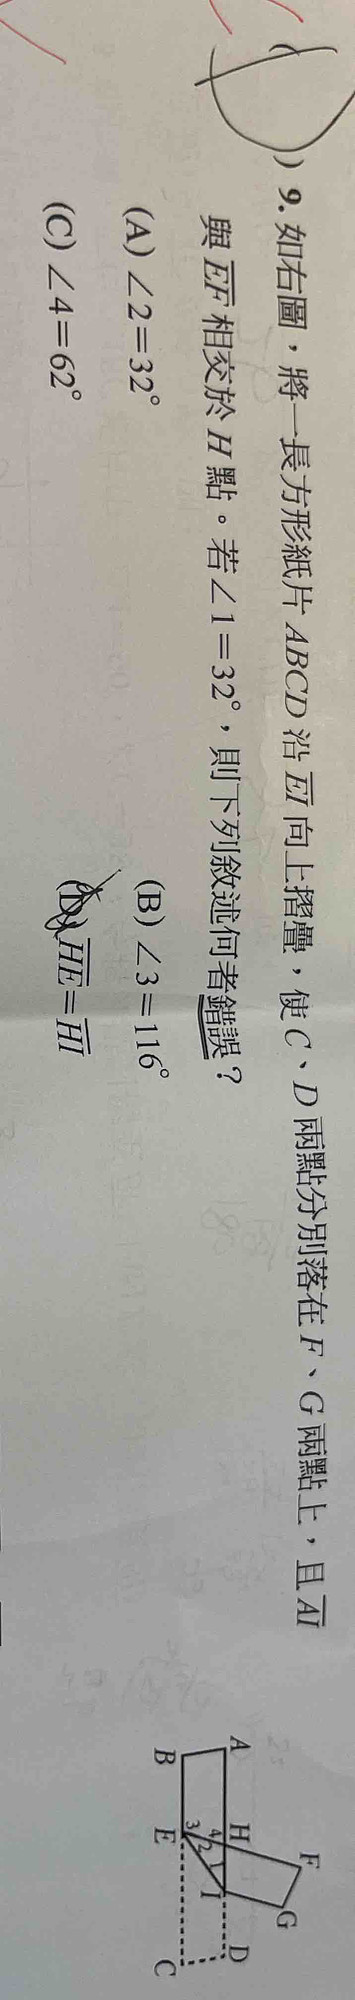 ) 9. 如右圖，將一長方形紙片 ABCD 沿 EI 向上摺疊，使 C、D 兩點分別落在 F、G 兩點上，且 AI
與 EF 相交於 H 點。若∠1＝32°，則下列敘述何者錯誤？
(A) ∠2＝32° (B) ∠3＝116°
(C) ∠4＝62° (D) HE＝HI
F
G
A H I D
4 1
2
3
B E C